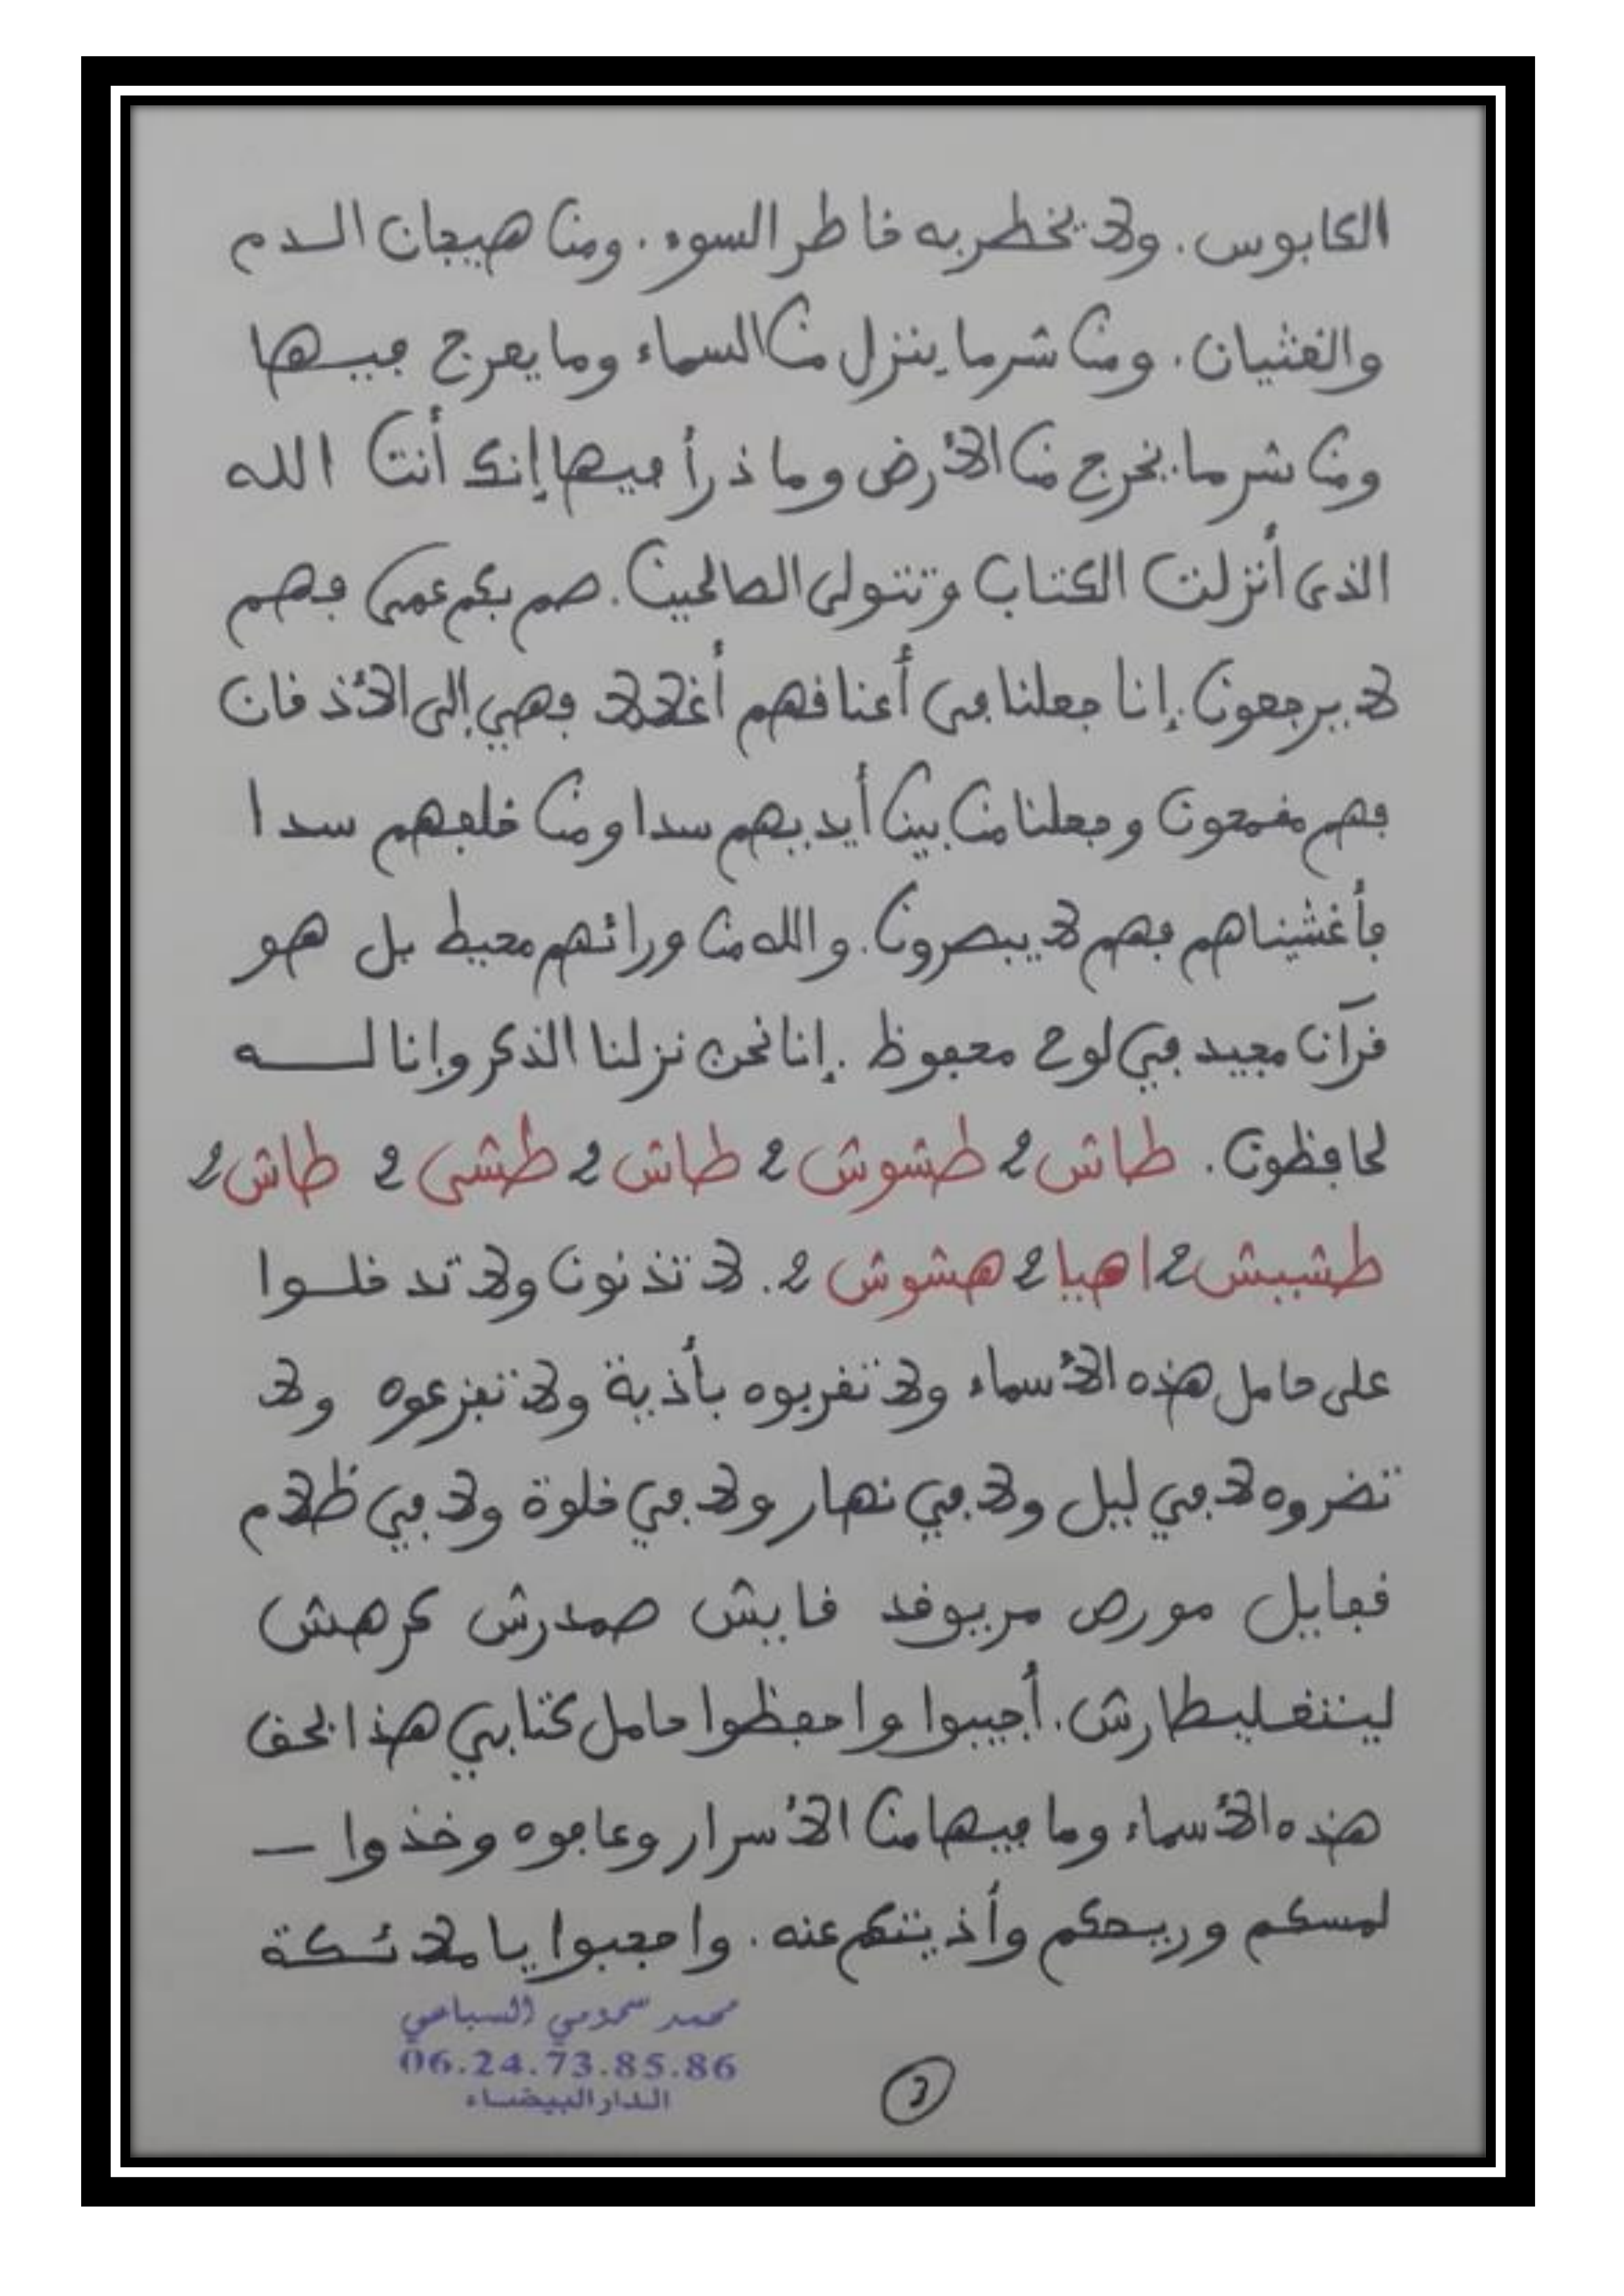 الكابوس. ولا يخطر به خاطر السوء. ومن هيجان الدم
والغثيان. ومن شر ما ينزل من السماء وما يعرج فيها
ومن شر ما يخرج من الأرض وما ذرأ فيها إنك أنت الله
الذي أنزلت الكتاب وتتولى الصالحين. صم بكم عمي فهم
لا يرجعون. إنا جعلنا في أعناقهم أغلالا فهي إلى الأذقان
فهم مقمحون وجعلنا من بين أيديهم سدا ومن خلفهم سدا
فأغشيناهم فهم لا يبصرون. والله من ورائهم محيط بل هو
قرآن مجيد في لوح محفوظ. إنا نحن نزلنا الذكر وإنا له
لحافظون. طاش 2 طشوش 2 طاش 2 طشى 2 طاش 2
طشيش 2 اهيا 2 هشوش 2. لا تذنون ولا تدخلوا
على حامل هذه الأسماء ولا تقربوه بأذية ولا تفزعوه ولا
تضروه لا في ليل ولا في نهار ولا في خلوة ولا في ظلام
مورص صمدرش كرهش
أجيبوا واحفظوا حامل كتابي هذا بحق
هذه الأسماء وما فيها من الأسرار وعافوه وخذوا –
لمسكم وريحكم وأذيتكم عنه. واحجبوا يا ملائكة
محمد السباعي
06.24.73.85.86
الدار البيضاء
3